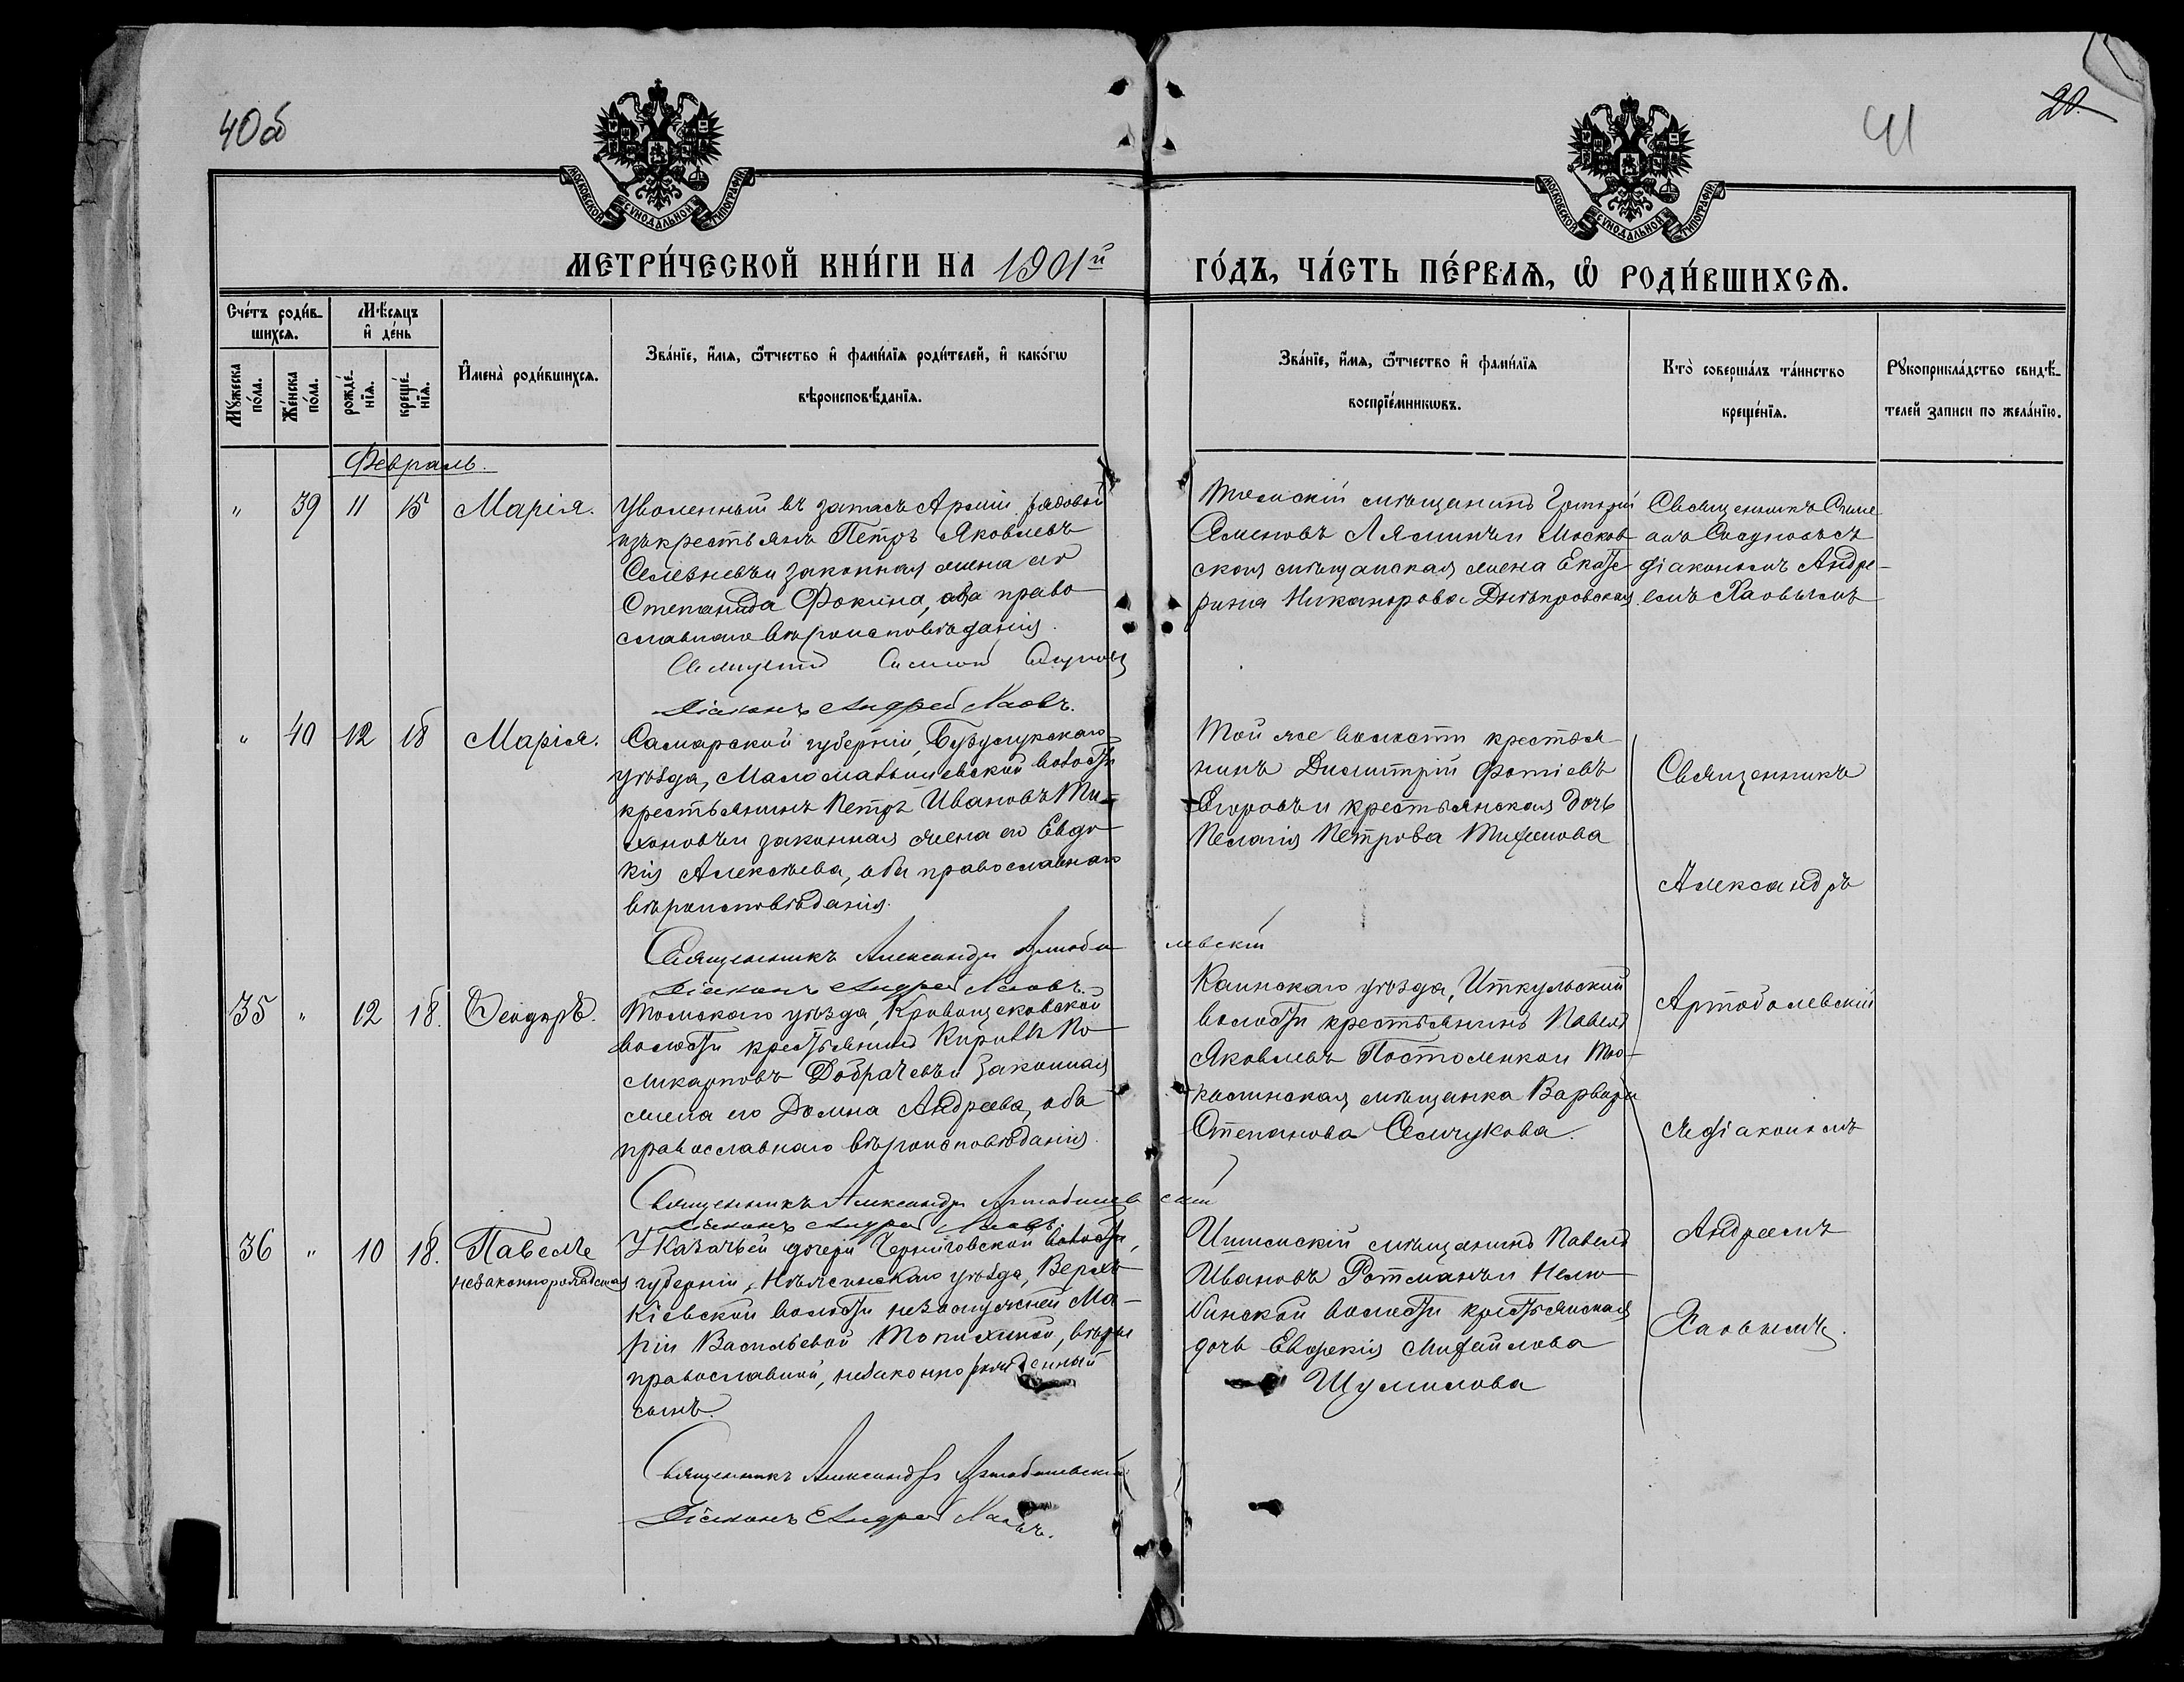 40об
41
20.
МОСКОВСКОЙ СѴНОДАЛЬНОЙ ТИПОГРАФІИ
МОСКОВСКОЙ СѴНОДАЛЬНОЙ ТИПОГРАФІИ
МЕТРИ́ЧЕСКОЙ КНИ́ГИ НА 1901й
ГО́ДЪ, ЧА́СТЬ ПЕ́РВАѦ, Ѡ РОДИ́ВШИХСѦ.
Сче́тъ роди́в-
шихсѧ.
Мѣ́сѧцъ
и де́нь
Мꙋ́жеска
по́ла.
Же́нска
по́ла.
рожде́-
нїѧ.
креще́-
нїѧ.
Имена̀ роди́вшихсѧ.
Зва́нїе, и́мѧ, ѻ́тчество и фами́лїѧ роди́телей, и како́гѡ
вѣроисповѣ́данїѧ.
Зва́нїе, и́мѧ, ѻ́тчество и фами́лїѧ
воспрїе́мникѡвъ.
Кто̀ соверша́лъ та́инство
креще́нїѧ.
Рꙋкоприкла́дство свидѣ́-
телей записи по жела́нїю.
Февраль.
" 39 11 15 Марія.
Уволенный въ запасъ Арміи рядовой
изъ крестьянъ Петръ Яковлевъ
Селезневъ и законная жена его
Степанида Фокина, оба право
славнаго вѣроисповѣданія.
Священникъ Симеонъ Сосуновъ
Діаконъ Андрей Хаовъ.
Томскій мѣщанинъ Григорій
Семеновъ Лямкинъ и Москов
ская мѣщанская жена Екате
рина Никанорова Днѣпровская
Священникъ Симе
онъ Сосуновъ съ
діакономъ Андре-
емъ Хаовымъ
" 40 12 18 Марія.
Самарской губерніи, Бузулукскаго
уѣзда, Маломалышевской волости
крестьянинъ Петръ Ивановъ Ти-
хоновъ и законная жена его Евдо
кія Алексѣева, оба православнаго
вѣроисповѣданія.
Священникъ Александръ Артобо левскій
Діаконъ Андрей Хаовъ.
Той же волости крестья
нинъ Димитрій Фотіевъ
Егоровъ и крестьянская дочь
Пелагія Петрова Тихонова
Священникъ
Александръ
Артоболевскій
съ діакономъ
Андреемъ
Хаовымъ.
35 " 12 18. Ѳеодоръ.
Томскаго уѣзда, Кривощековской
волости крестьянинъ Кириллъ По
ликарповъ Добрачевъ и законная
жена его Домна Андреева, оба
православнаго вѣроисповѣданія.
Священникъ Александръ Артоболев скій
Діаконъ Андрей Хаовъ.
Каинскаго уѣзда, Иткульской
волости крестьянинъ Павелъ
Яковлевъ
мѣщанка Варвара
Степанова Семчукова.
36 " 10 18. Павелъ
незаконнорожденный
У Казачьей дочери Черниговской волости,
губерніи, Нѣжинскаго уѣзда, Верхъ
кіевской волости незамужней Ма-
ріи Васильевой Топихиной, вѣры
православной, незаконнорожденный
сынъ.
Священникъ Александръ Артоболевскій
Діаконъ Андрей Хаовъ.
Ишимскій мѣщанинъ Павелъ
Ивановъ Ротманъ и Нелю
бинской волости крестьянская
дочь Евдокія Михайлова
Шумилова